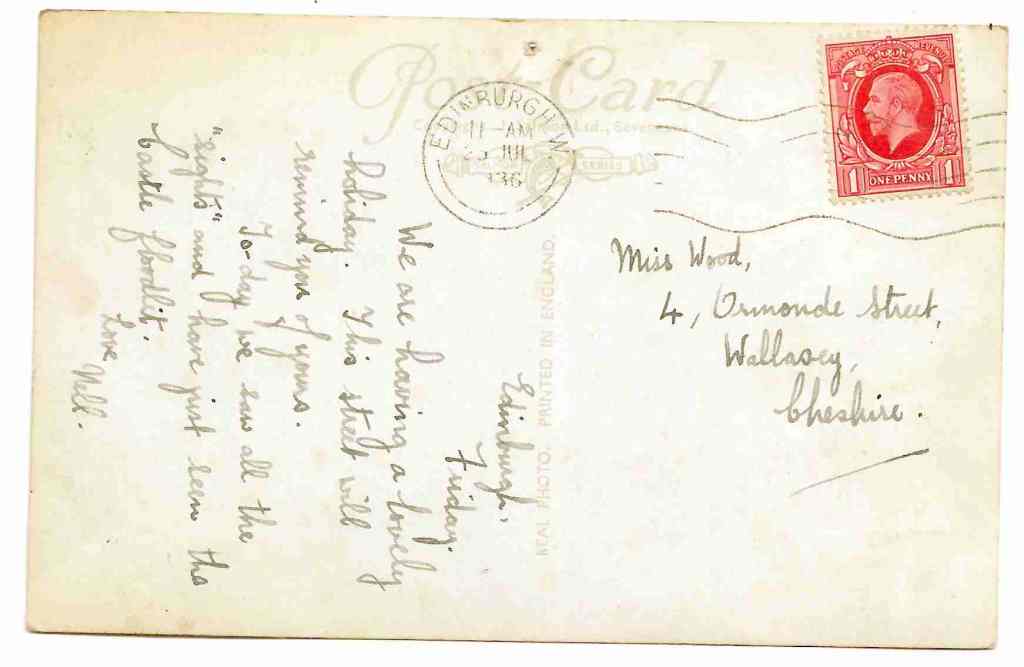 Post Card
Ltd., Sevenoaks
SERIES
EDINBURGH W
11 - AM
JUL
1936
POSTAGE REVENUE
1 ONE PENNY 1
REAL PHOTO. PRINTED IN ENGLAND.
Edinburgh,
Friday.
We are having a lovely
holiday. This street will
remind you of yours.
To-day we saw all the
"sights" and have just seen the
Castle floodlit.
Love Nell.
Miss Wood,
4, Ormonde Street,
Wallasey,
Cheshire.